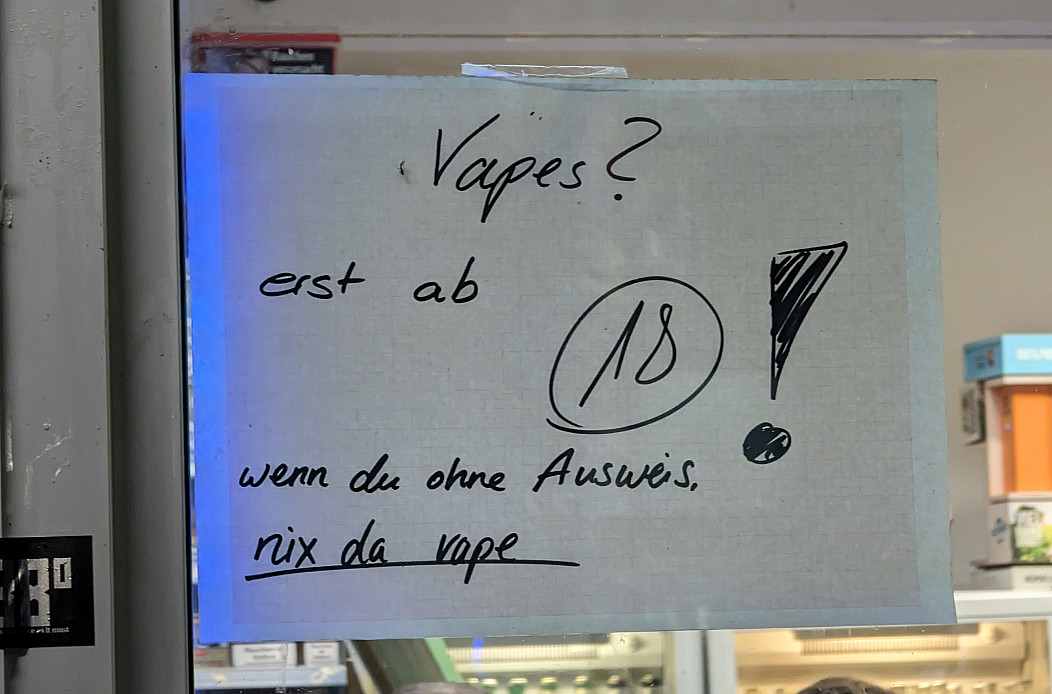 Vapes?
erst ab
18 !
wenn du ohne Ausweis,
nix da vape